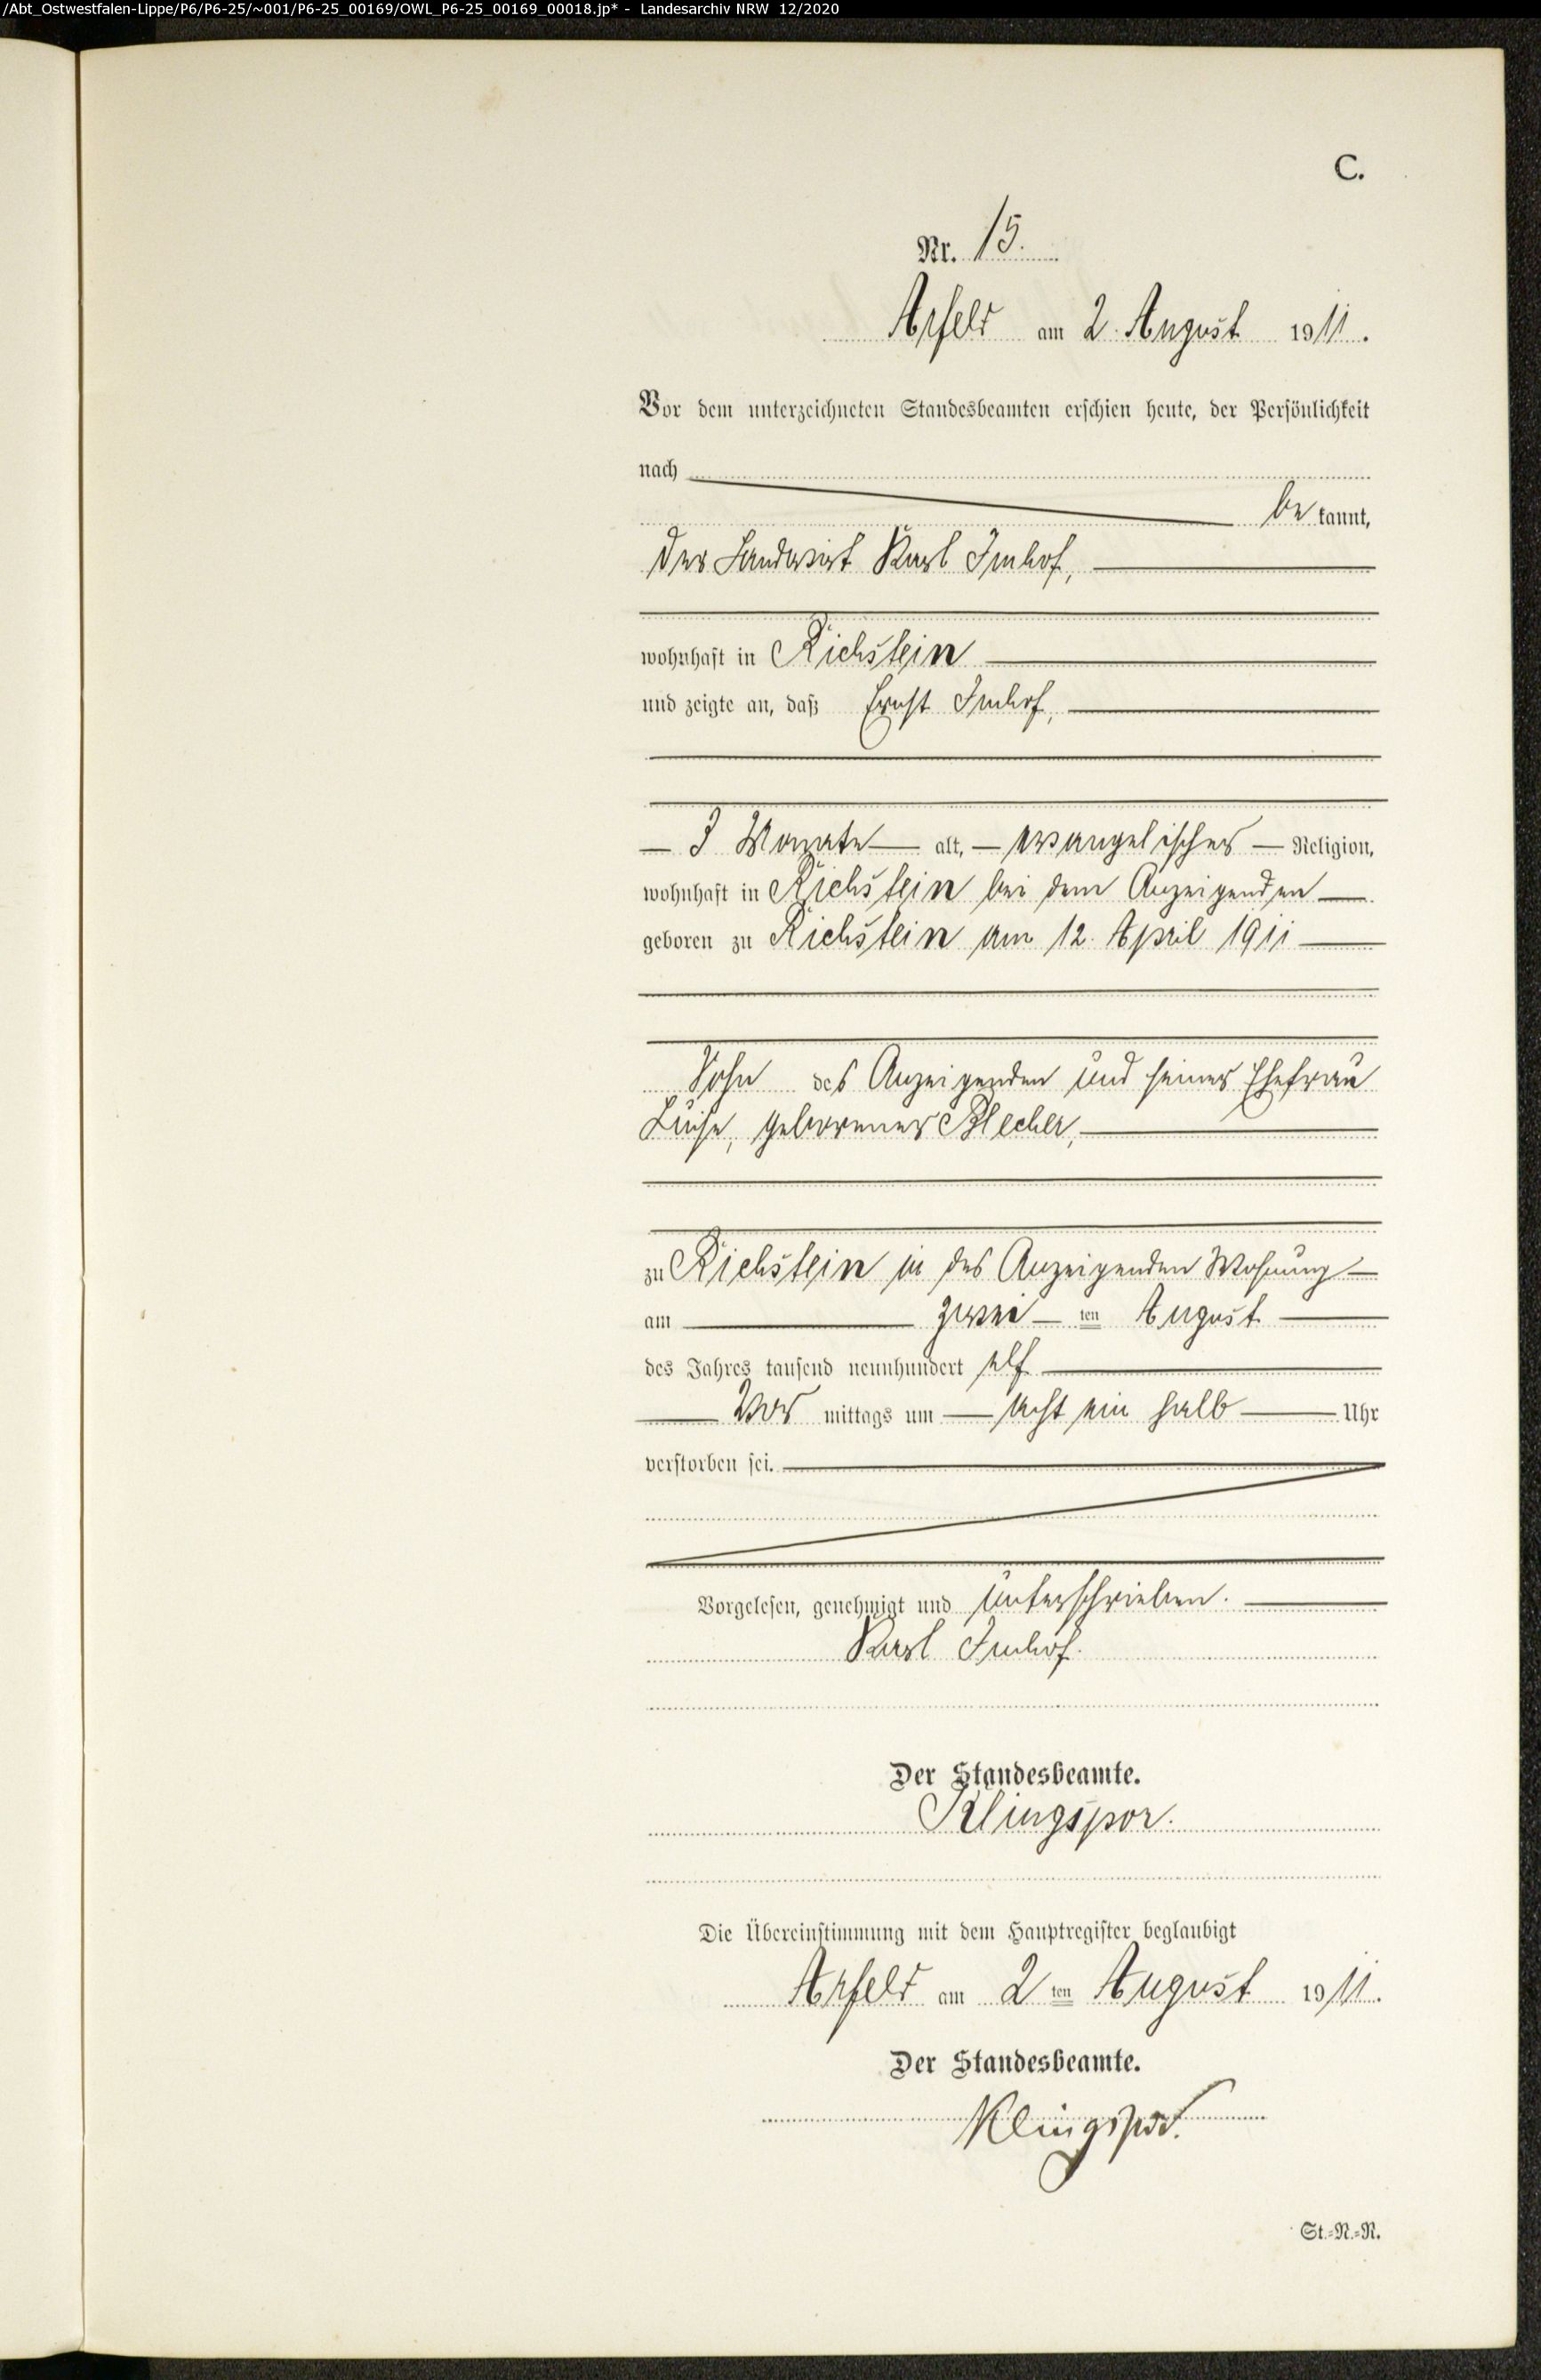 /Abt_Ostwestfalen-Lippe/P6/P6-25/~001/P6-25_00169/OWL_P6-25_00169_00018.jp* - Landesarchiv NRW 12/2020
C.
Nr. 15.
Arfeld am 2. August 1911.
Vor dem unterzeichneten Standesbeamten erschien heute, der Persönlichkeit
nach
be kannt,
der Landwirt Karl Imhof,
wohnhaft in Richstein
und zeigte an, daß Ernst Imhof,
3 Monate alt, evangelischer Religion,
wohnhaft in Richstein bei dem Anzeigenden
geboren zu Richstein am 12. April 1911
Sohn des Anzeigenden und seiner Ehefrau
Luise, geborener Blecher,
zu Richstein in des Anzeigenden Wohnung
am zwei ten August
des Jahres tausend neunhundert elf
Vor mittags um acht ein halb Uhr
verstorben sei.
Vorgelesen, genehmigt und unterschrieben.
Karl Imhof.
Der Standesbeamte.
Klingspor.
Die Übereinstimmung mit dem Hauptregister beglaubigt
Arfeld am 2 ten August 1911.
Der Standesbeamte.
Klingspor.
St.-N.-R.